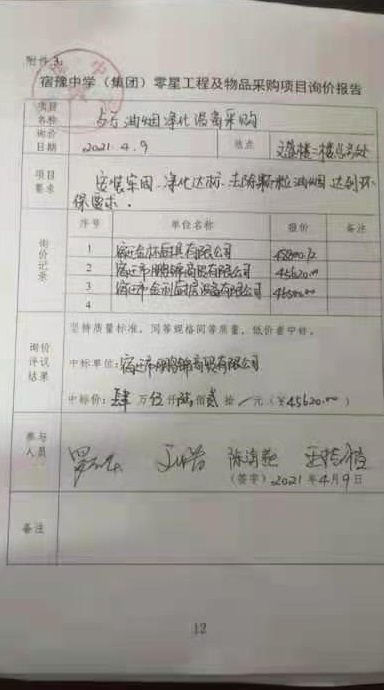 附件3:
宿豫中学（集团）零星工程及物品采购项目询价报告
项目名称 油烟净化设备采购
询价日期 2021.4.9 地点 文萃楼二楼总务处
项目要求 安装牢固、净化达标、去除颗粒油烟达到环
保要求.
询价记录 序号 单位名称 报价 备注
1 有限公司
2 宿迁市鹏锦商贸有限公司 45620.00
3 宿迁市金利厨房设备有限公司 46500.00
4
询价评议结果 坚持质量标准，同等规格同等质量，低价者中标。
中标单位:宿迁市鹏锦商贸有限公司
中标价: 肆 万 伍 仟 陆 佰 贰 拾 元（￥45620.00）
参与人员
（签字）2021年4月9日
备注
12